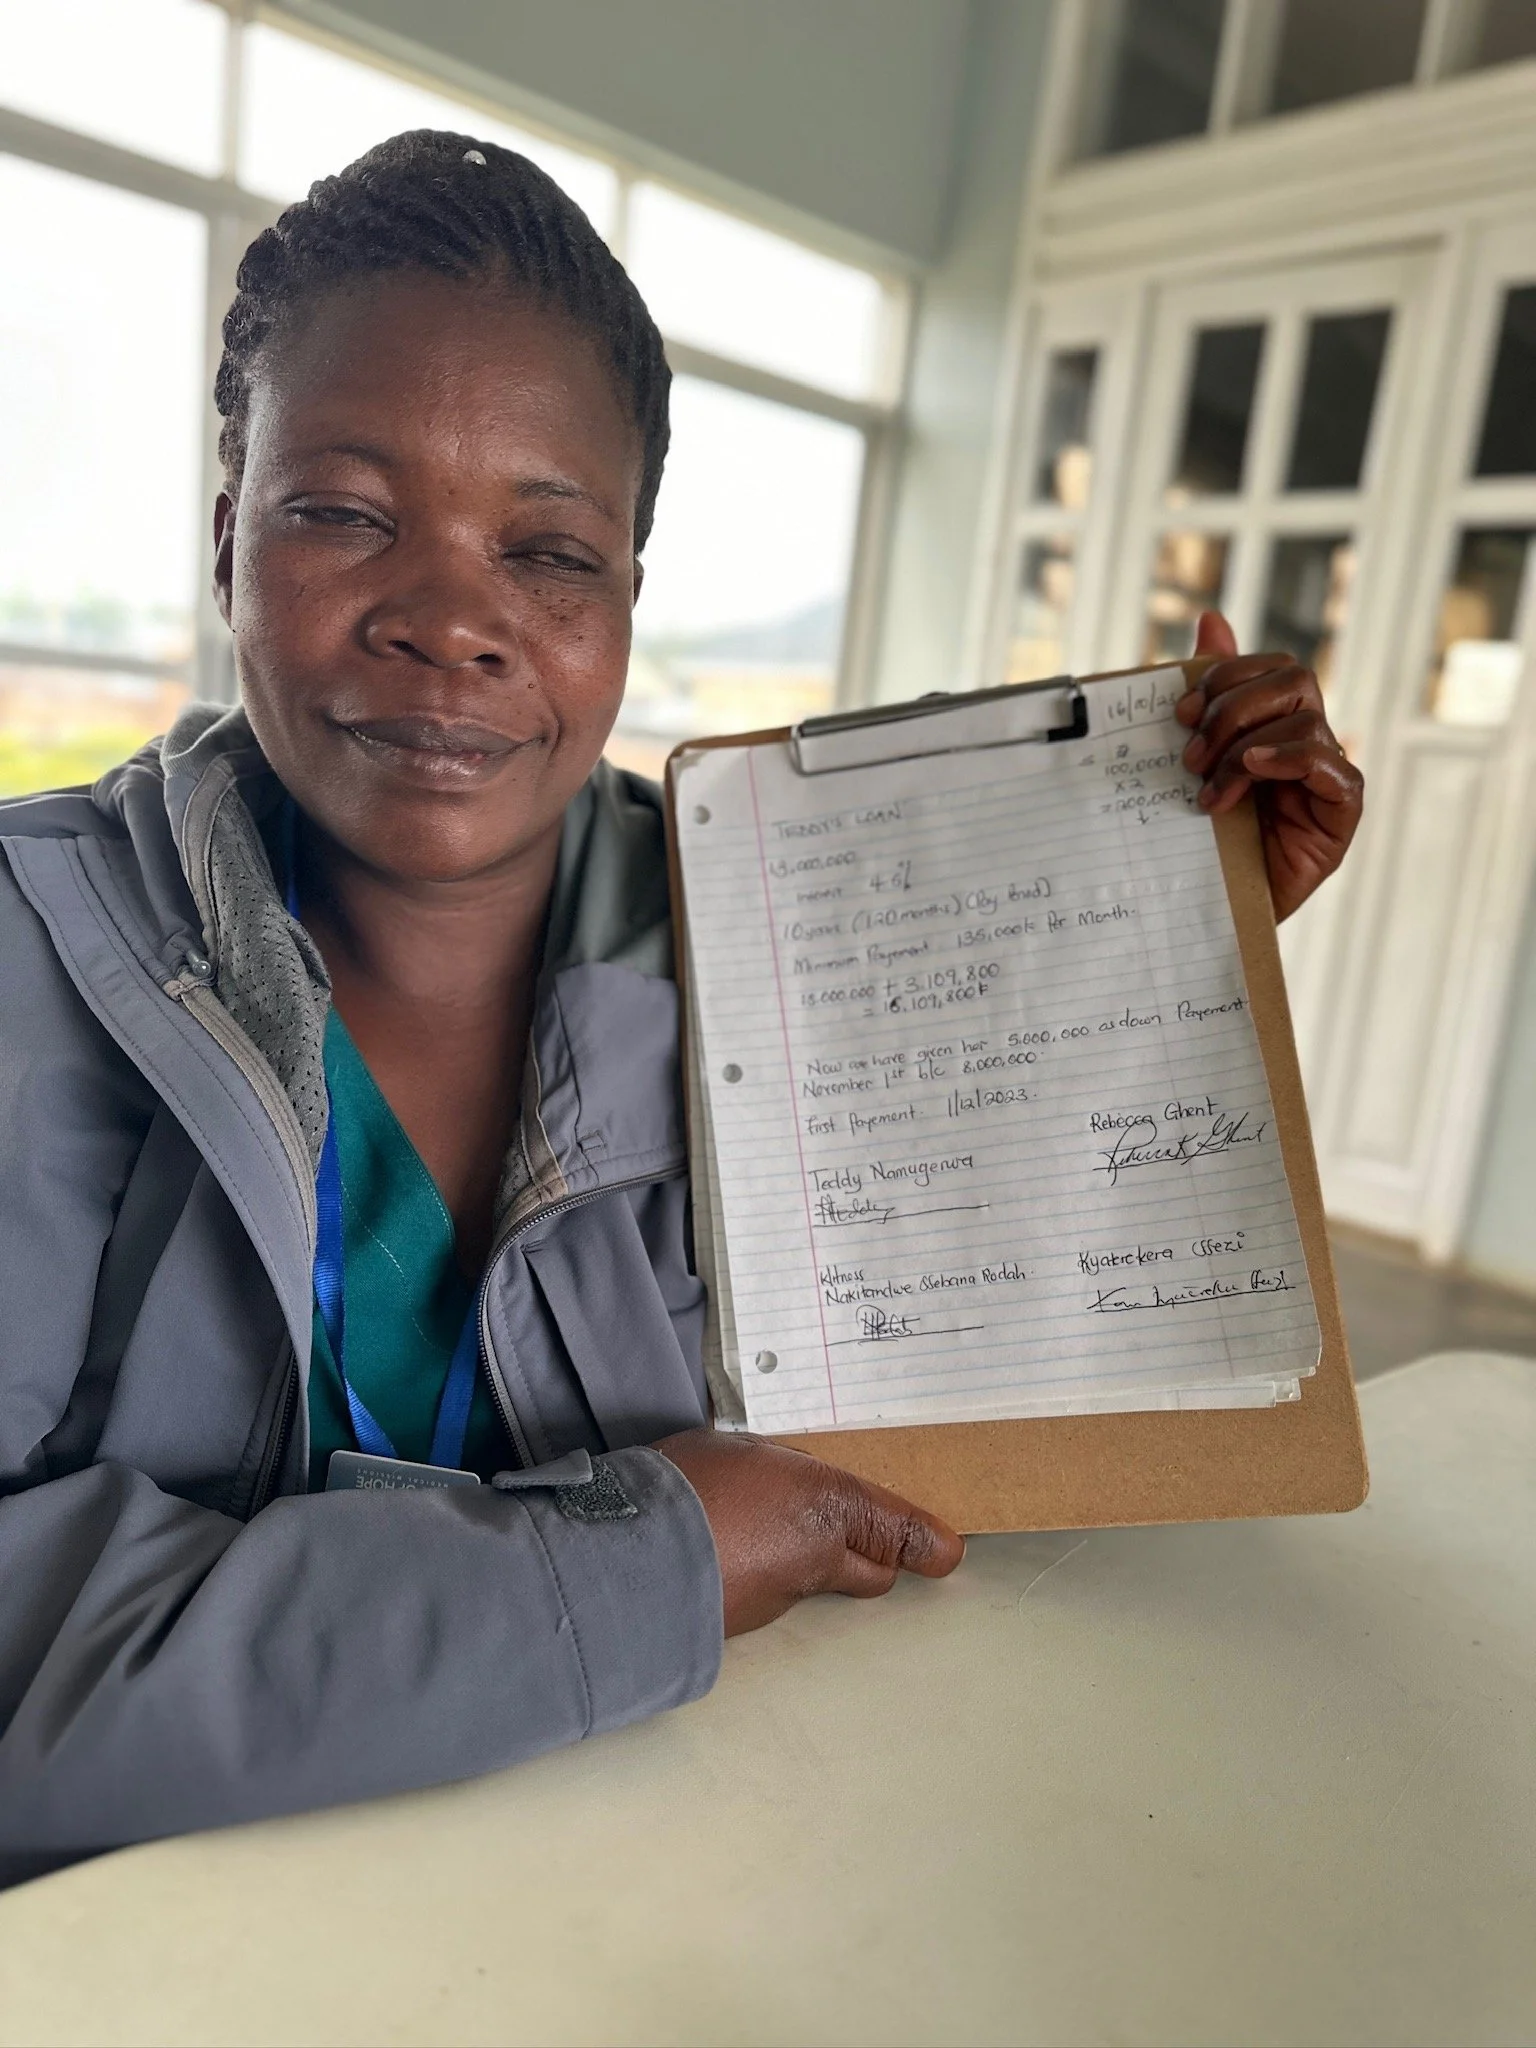 16/10/23
= 2
100,000k
x 2
= 200,000k
TEDDY'S LOAN
13,000,000
Interest 4.5%
10 years (120 months) (Pay End)
Minimum Payement 135,000k Per Month.
13.000.000 + 3.109,800
= 16,109,800k
Now we have given her 5.000,000 as down Payement
November 1st b/c 8,000,000.
First Payement. 1/12/2023.
Teddy Namugerwa
Rebecca Ghent
Witness
Nakitandwe Ssebana Rodah.
Kyaterekera Ssezi
OF HOPE
MEDICAL MISSIONS